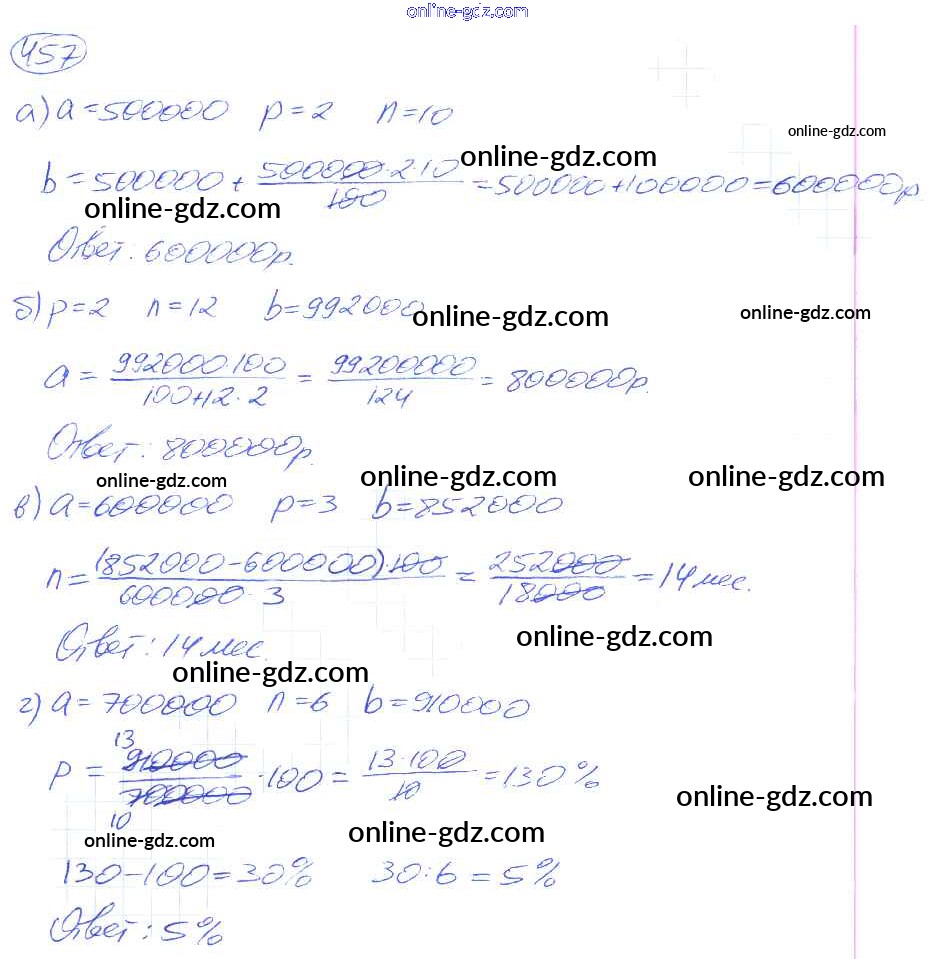 online-gdz.com
457
а) a = 500000 p = 2 n = 10
online-gdz.com
online-gdz.com
b = 500000 + 500000·2·10/100 = 500000 + 100000 = 600000р.
online-gdz.com
Ответ: 600000р.
б) p = 2 n = 12 b = 992000
online-gdz.com
online-gdz.com
a = 992000·100/100+12·2 = 99200000/124 = 800000р.
Ответ: 800000р.
online-gdz.com
online-gdz.com
online-gdz.com
в) a = 600000 p = 3 b = 852000
n = (852000-600000)·100/600000·3 = 252000/18000 = 14 мес.
online-gdz.com
Ответ: 14 мес.
online-gdz.com
г) a = 700000 n = 6 b = 910000
13
p = 910000/700000 ·100 = 13·100/10 = 130%
10
online-gdz.com
online-gdz.com
online-gdz.com
130-100 = 30% 30:6 = 5%
Ответ: 5%